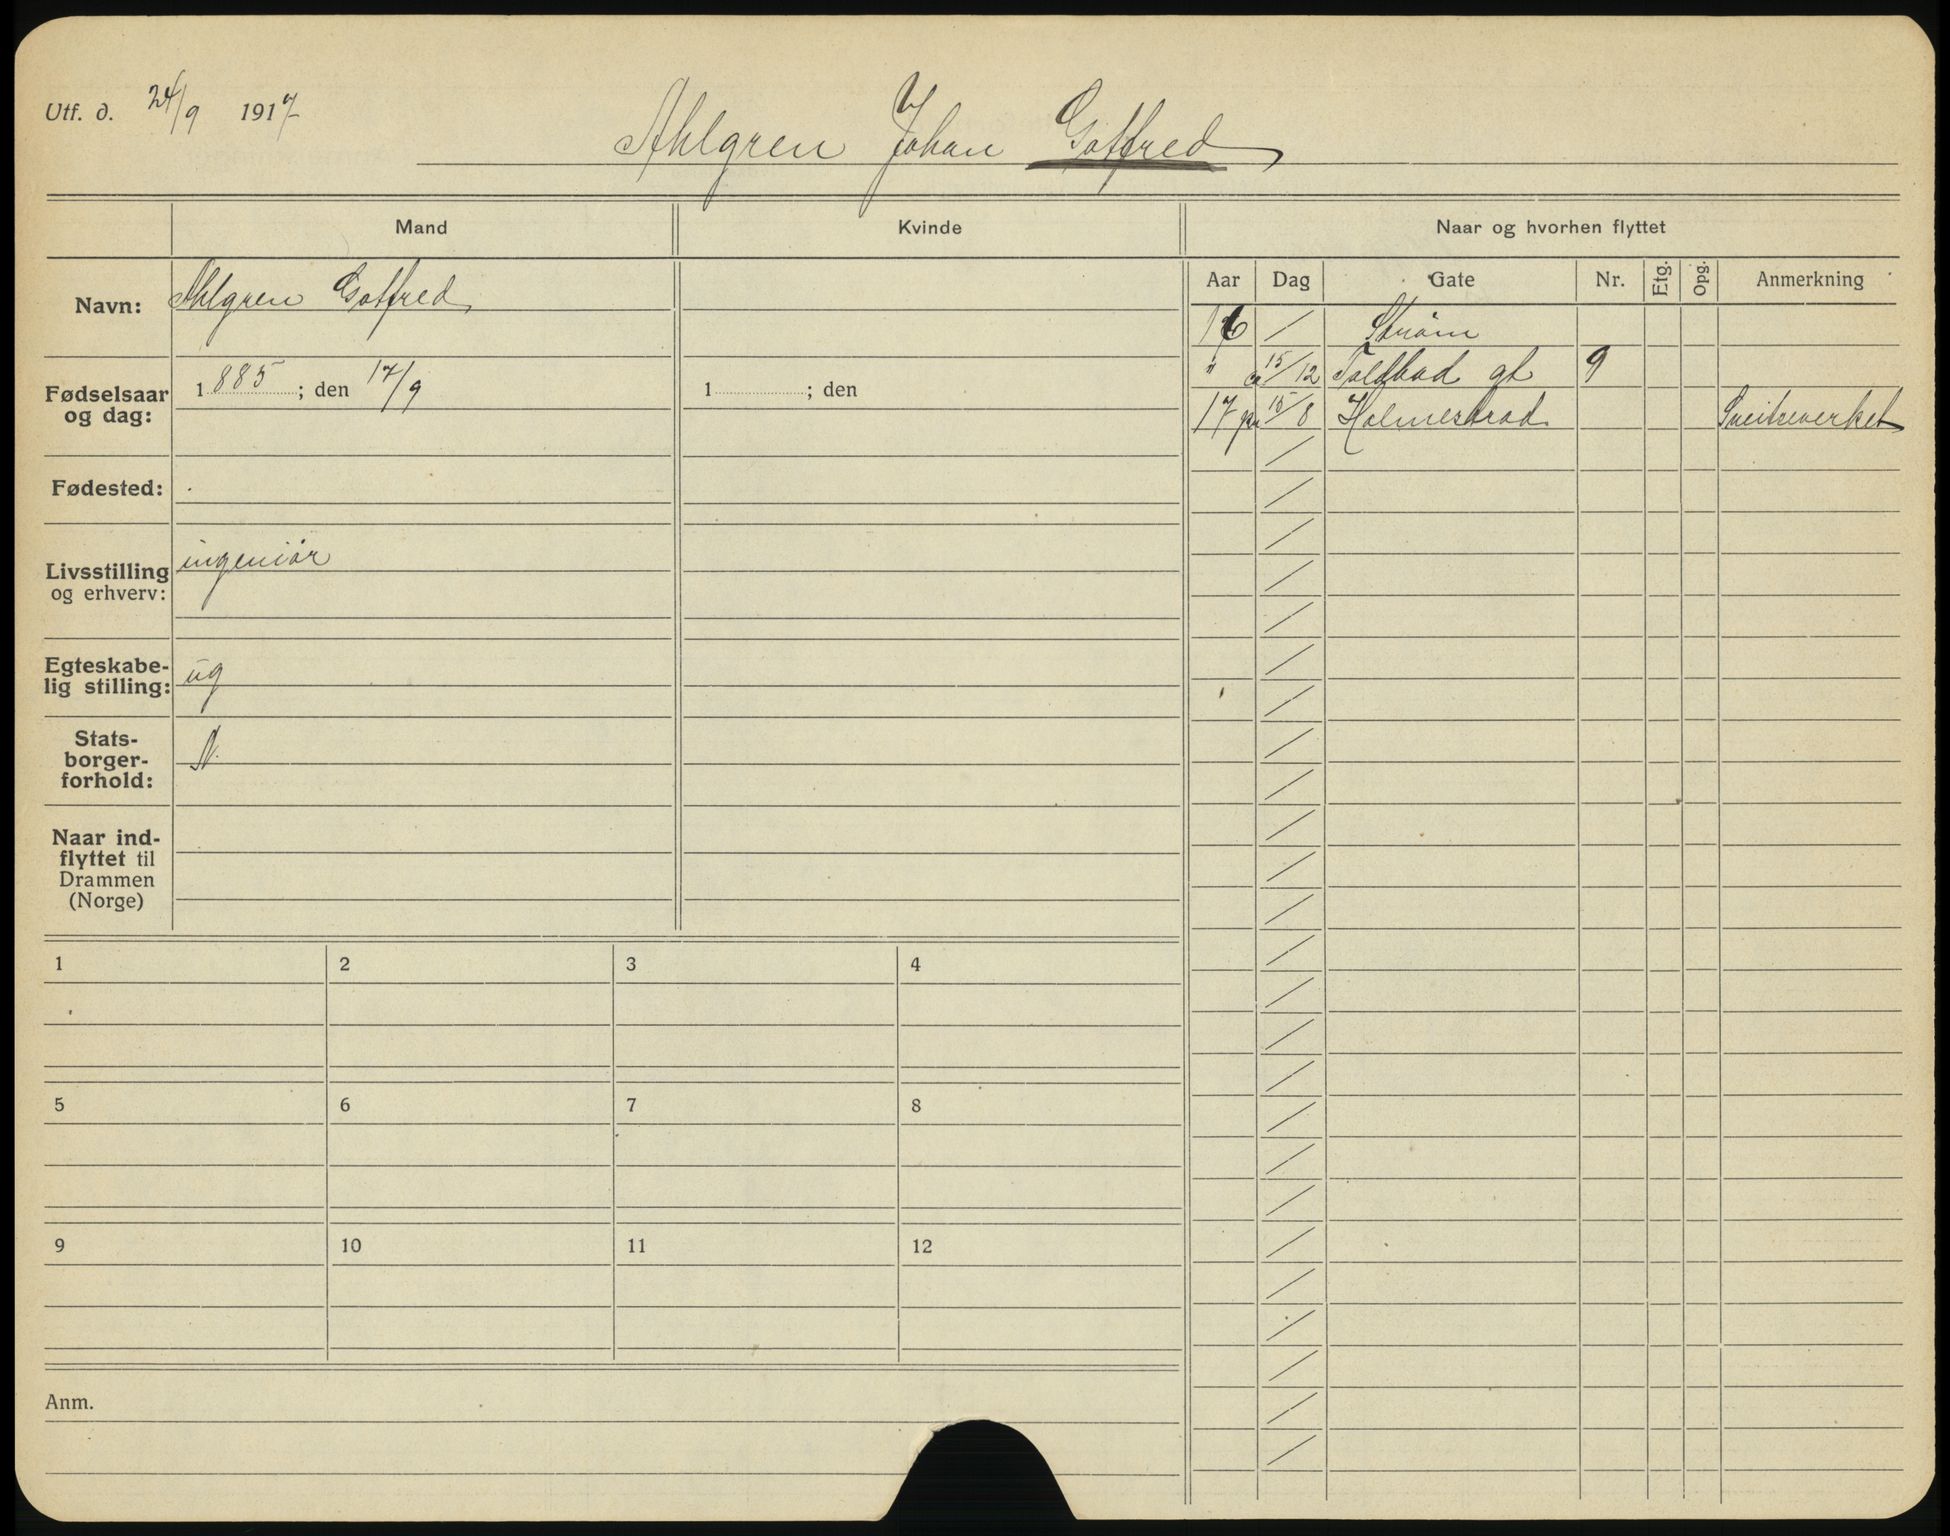 Utf. d. 24/9 1917
Ahlgren Johan Gotfred
Mand
Kvinde
Naar og hvorhen flyttet
Aar Dag Gate Nr. Etg. Opg. Anmerkning
Navn: Ahlgren Gotfred
Fødselsaar og dag: 1885; den 17/9
1 ; den
Fødested:
Livsstilling
og erhverv:
ingeniør
Egteskabe-
lig stilling:
ug
Stats-
borger-
forhold:
N.
Naar ind-
flyttet til
Drammen
(Norge)
16 / Strøm
" ca 15/12 Toldbod gt 9
17 15/8 Holmestrad
1 2 3 4
5 6 7 8
9 10 11 12
Anm.